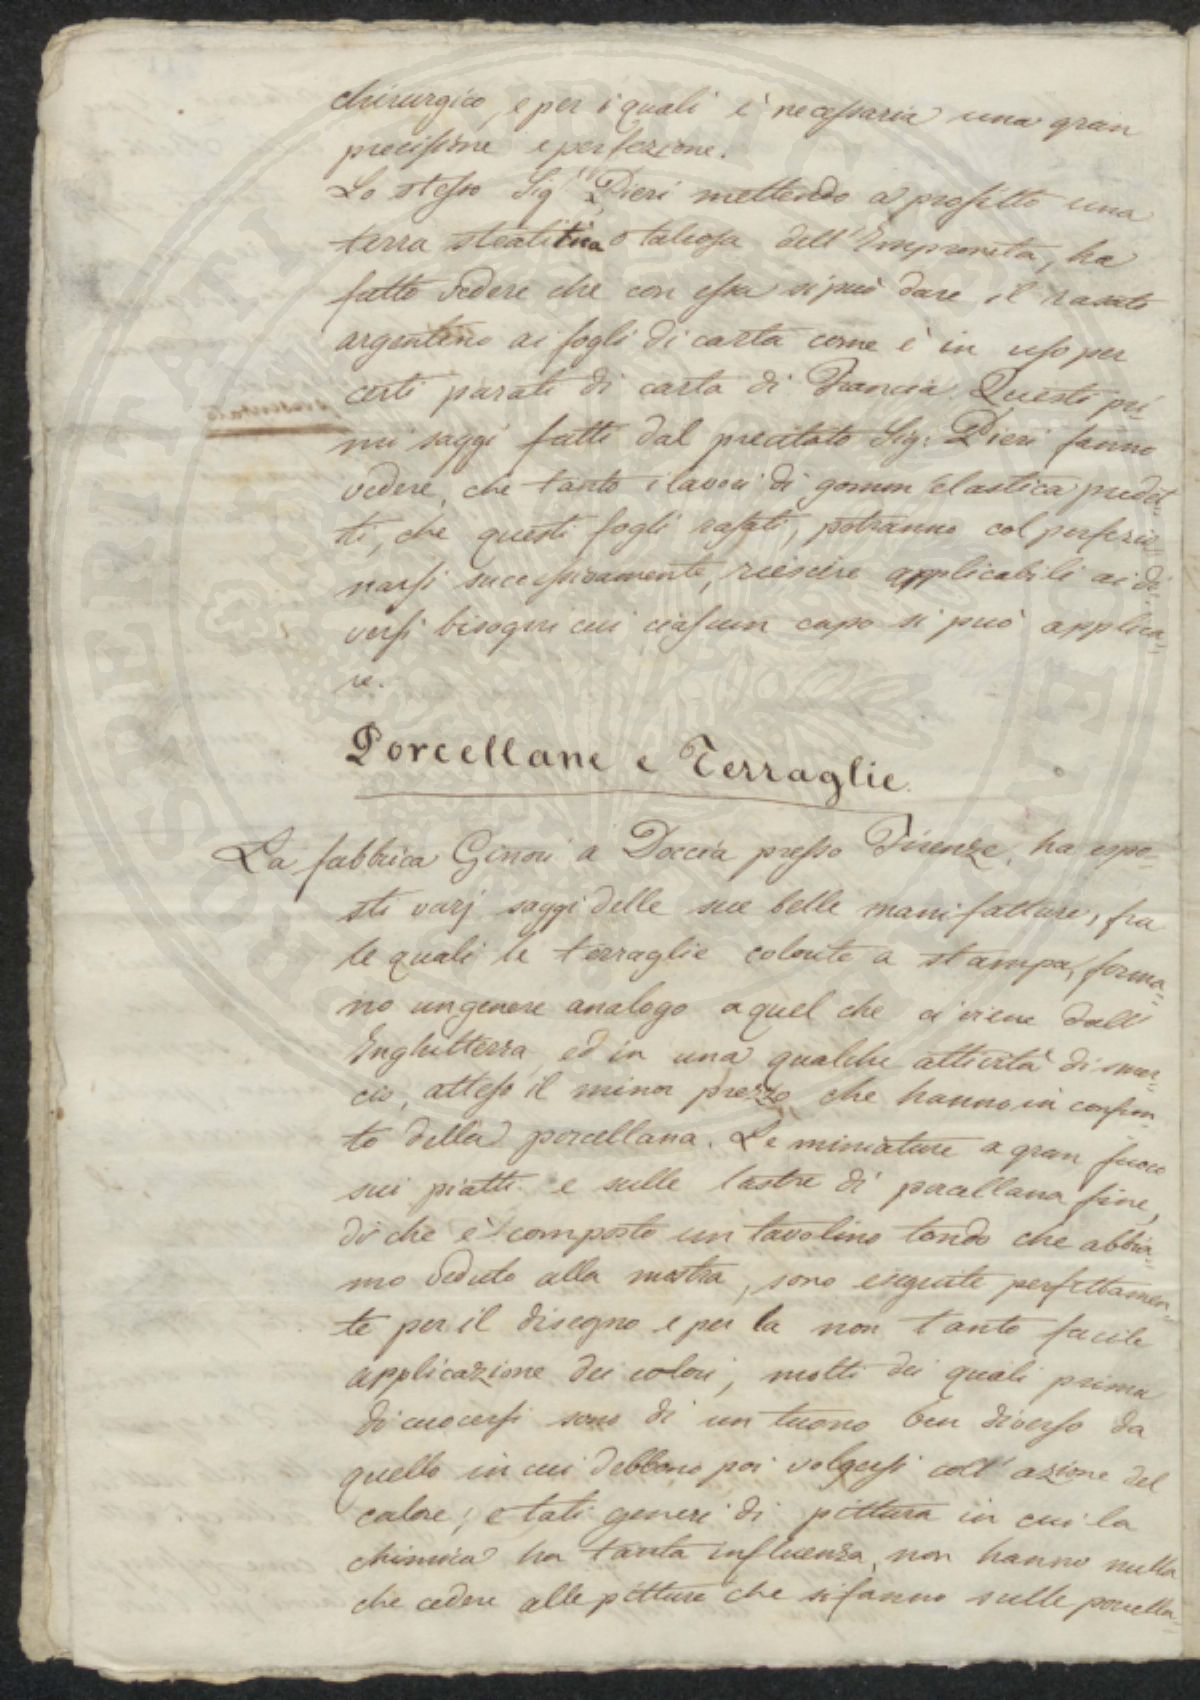 chirurgico, e per i quali è necessaria una gran
precisione e perfezione.
Lo stesso Sig.r Pieri mettendo a profitto una
terra steatitica o talcosa dell'Impruneta, ha
fatto vedere che con essa si può dare il rasato
argentino ai fogli di carta come è in uso per
certi parati di carta di Francia. Questi pri-
mi saggi fatti dal precitato Sig: Pieri fanno
vedere, che tanto i lavori di gomm'elastica predet-
ti, che questi fogli rasati, potranno col perfezio-
narsi successivamente, riescire applicabili ai di-
versi bisogni cui ciascun capo si può applica-
re.
Porcellane e Terraglie.
La fabbrica Ginori a Doccia presso Firenze, ha espo-
sti varj saggi delle sue belle manifatture, fra
le quali le terraglie colorite a stampa, forma-
no un genere analogo a quel che ci viene dall'
Inghilterra, ed in una qualche attività di smer-
cio, atteso il minor prezzo che hanno in confron-
to della porcellana. Le miniature a gran fuoco
sui piatti e sulle lastre di porcellana fine,
di che è composto un tavolino tondo che abbia-
mo veduto alla mostra, sono eseguite perfettamen-
te per il disegno e per la non tanto facile
applicazione dei colori, molti dei quali prima
di cuocersi sono di un tuono ben diverso da
quello in cui debbono poi volgersi coll'azione del
calore; e tali generi di pittura in cui la
chimica ha tanta influenza, non hanno nulla
che cedere alle pitture che si fanno sulle porcella-